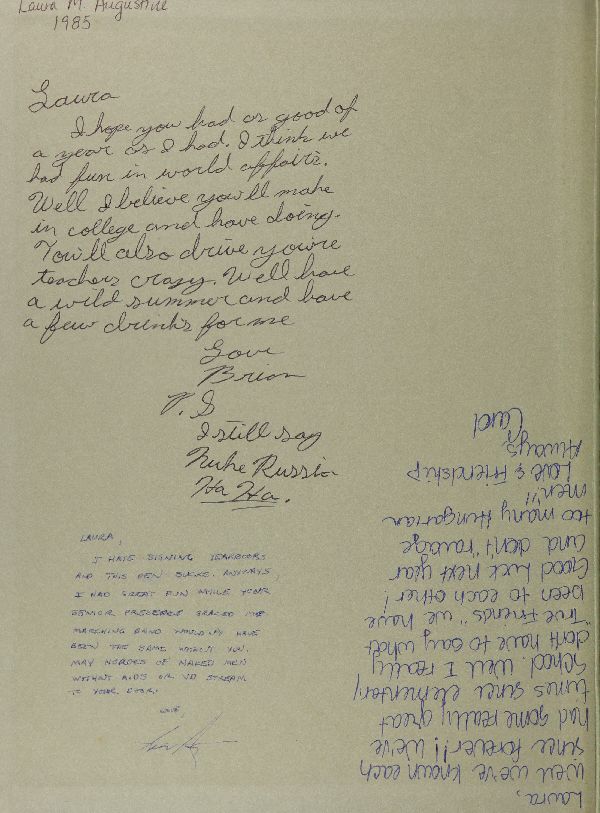 Laura M. Augustine
1985
Laura
I hope you had as good of
a year as I had. I think we
had fun in world affairs.
Well I believe you'll make
in college and have doing.
You'll also drive you're
teachers crazy. Well have
a wild summer and have
a few drinks for me
Love
Brian
P.S
I still say
Nuke Russia
Ha Ha.
LAURA,
I HATE SIGNING YEARBOOKS
AND THIS PEN SUCKS. ANYWAYS,
I HAD GREAT FUN WHILE YOUR
SENIOR PRESENCE GRACED THE
MARCHING BAND WOULD'NT HAVE
BEEN THE SAME WITHOUT YOU.
MAY HORDES OF NAKED MEN
WITHOUT AIDS OR VD STREAM
TO YOUR DOOR.
LOVE,
Laura,
Well we've known each
since forever!! We've
had some really great
times since elementary
School. Well I really
don't have to say what
"True Friends" we have
been to each other!
Good luck next year
and don't ravage
too many Hungarian
men!!
Love & Friendship
Always
Carol